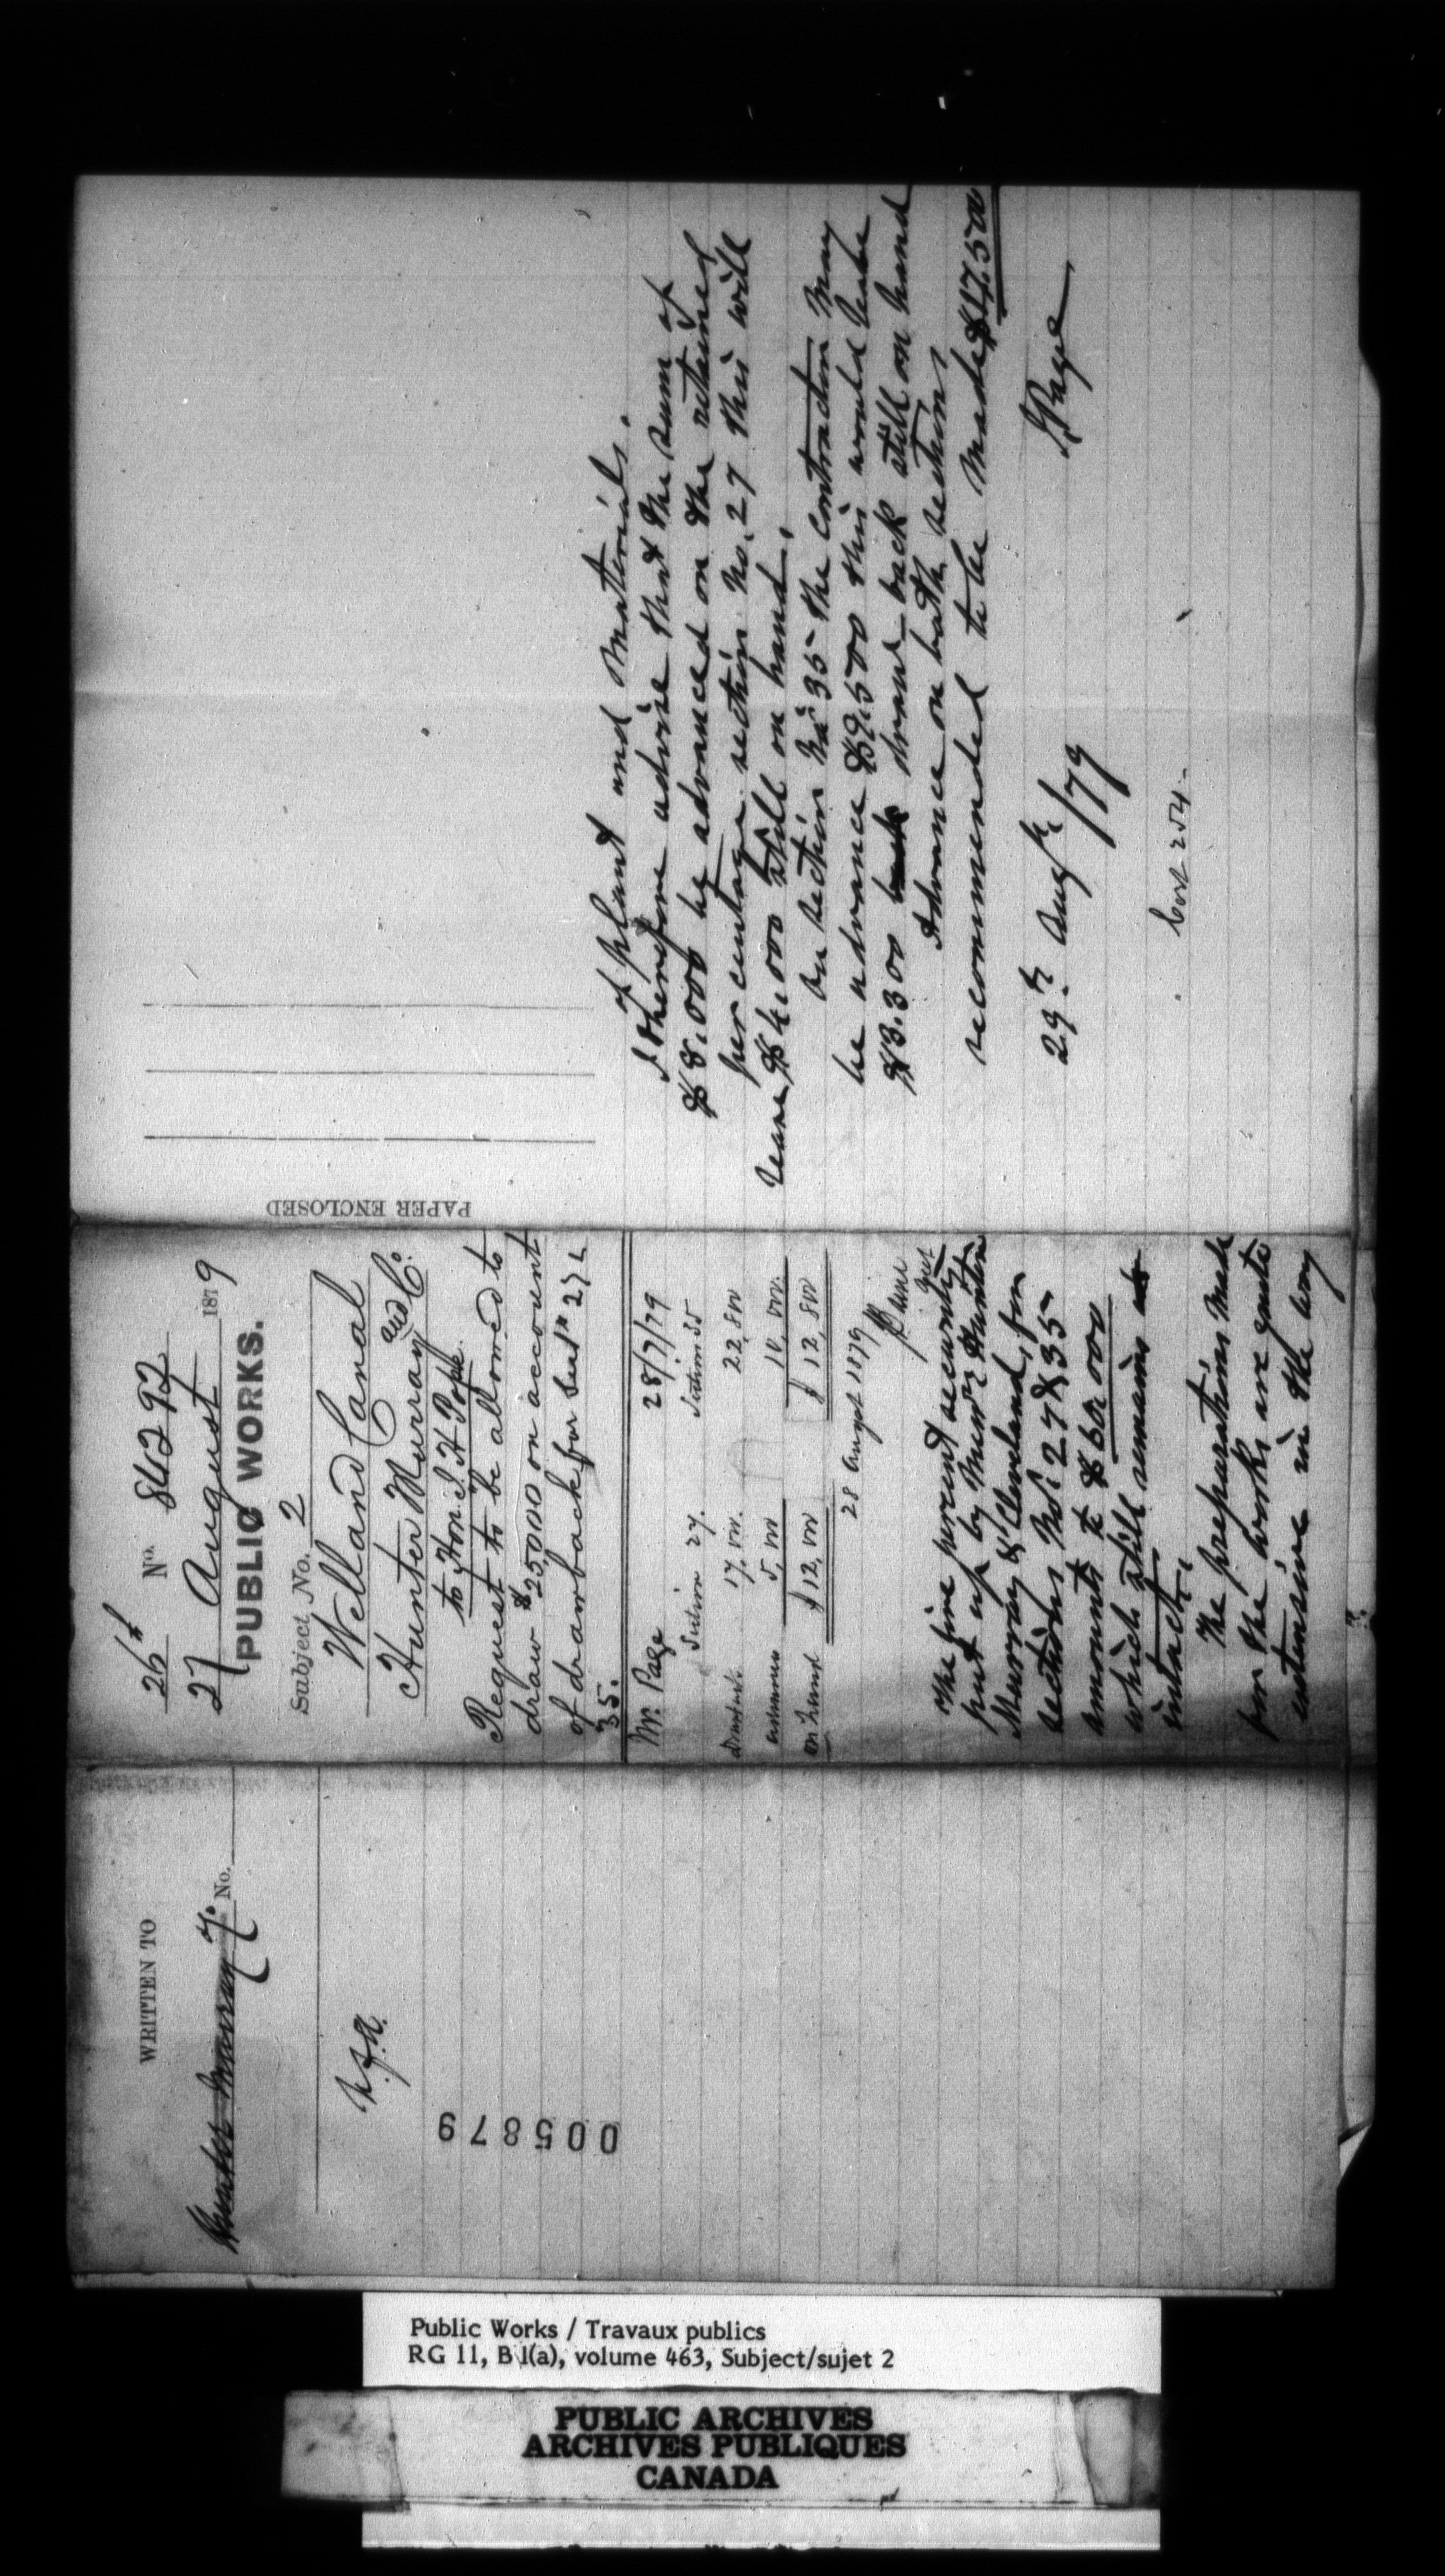 WRITTEN TO
Hunter Murray & Co. No.
N.J.R.
005879
26th No. 86292
27 August 1879
PUBLIC WORKS.
Subject No. 2
Welland Canal
Hunter Murray and Co.
to Hon. J. H. Pope
Request to be allowed to
draw $25,000 on account
of drawback for Sect. 27 &
35.
Mr. Page 28/7/79
Section 27. Section 35
Drawback 17,000. 22,800
advances 5,000 10,000.
on hand $12,000 $12,800
28 August 1879
The five per cent security
put up by Messrs Hunter
Murray & Cleveland, for
sections Nos. 27 & 35
amounts to $60,000
which still remains
intact.
The preparations made
for the works are quite
extensive in the way
PAPER ENCLOSED
of plant and materials.
I therefore advise that the sum of
$8,000 be advanced on the retained
percentage section No. 27 this will
leave $4,000 still on hand.
On section No 35 the contractors may
be advance $9,500 this would leave
$3,300 draw-back still on hand
Advance on both sections
recommended to be made $17,500
29th Augt /79 J Page